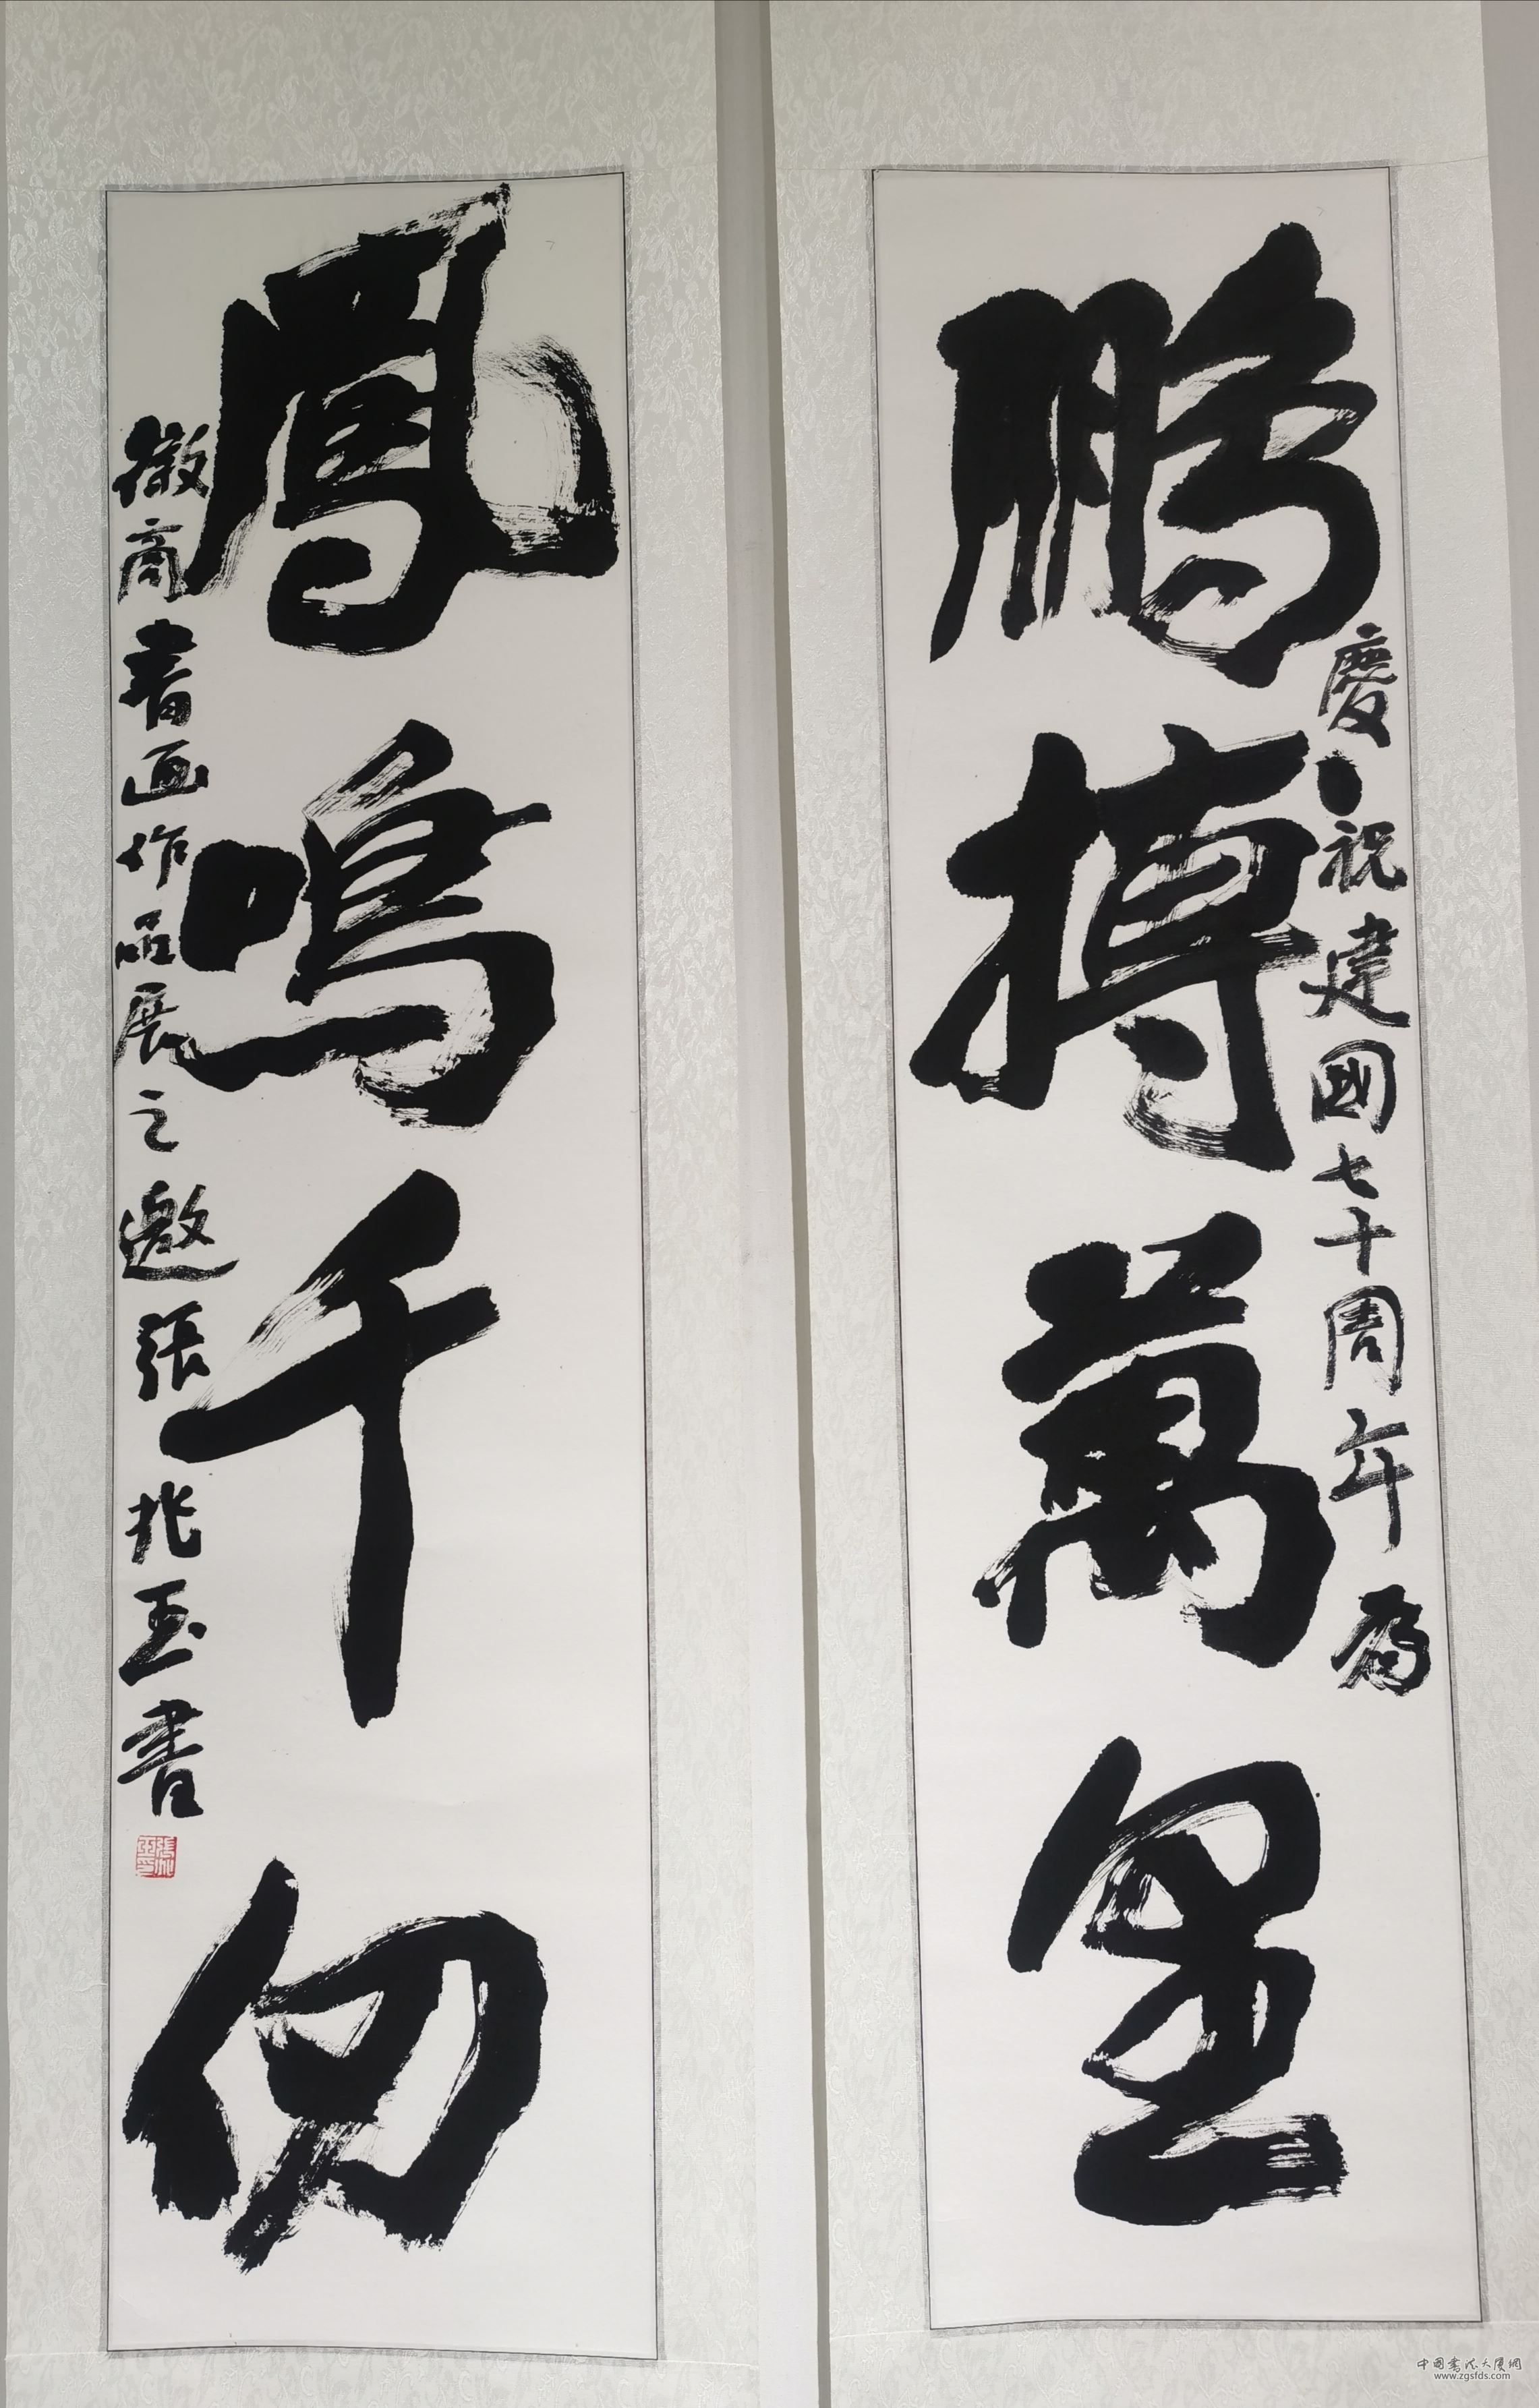 鵬摶萬里
慶祝建國七十周年為
鳳鳴千仞
徽商書画作品展之邀張兆玉書
張兆玉印
中国書法大厦網
www.zgsfds.com